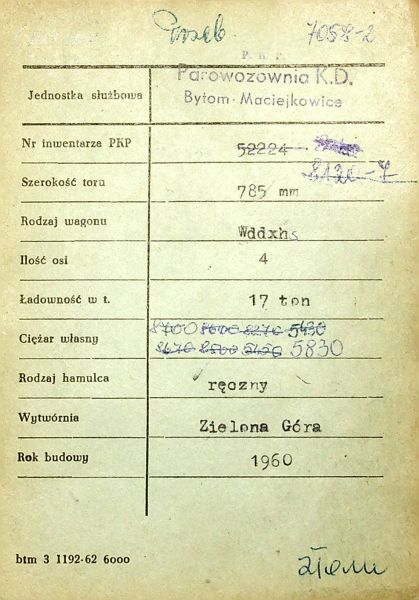 Przeb 7058-2
P. K. P.
Parowozownia K.D.
Jednostka służbowa Bytom-Maciejkowice
Nr inwentarza PKP 52224
8120-7
Szerokość toru 785 mm
Rodzaj wagonu Wddxhs
Ilość osi 4
Ładowność w t. 17 ton
8700 8600 8270 5430
Ciężar własny 8670 8500 5450 5830
Rodzaj hamulca ręczny
Wytwórnia Zielona Góra
Rok budowy 1960
btm 3 1192-62 6000 złom